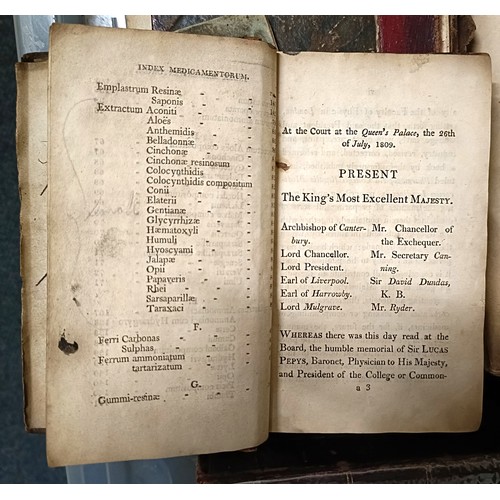 INDEX MEDICAMENTORUM.
Emplastrum Resinæ
Saponis
Extractum Aconiti
Aloës
Anthemidis
Belladonnæ
Cinchonæ
Cinchonæ resinosum
Colocynthidis
Colocynthidis compositum
Conii
Elaterii
Gentianæ
Glycyrrhizæ
Hæmatoxyli
Humuli
Hyoscyami
Jalapæ
Opii
Papaveris
Rhei
Sarsaparillæ
Taraxaci
F.
Ferri Carbonas
Sulphas
Ferrum ammoniatum
tartarizatum
G.
Gummi-resinæ
At the Court at the Queen's Palace, the 26th
of July, 1809.
PRESENT
The King's Most Excellent MAJESTY.
Archbishop of Canter-
bury.
Lord Chancellor.
Lord President.
Earl of Liverpool.
Earl of Harrowby.
Lord Mulgrave.
Mr. Chancellor of
the Exchequer.
Mr. Secretary Can-
ning.
Sir David Dundas,
K. B.
Mr. Ryder.
WHEREAS there was this day read at the
Board, the humble memorial of Sir LUCAS
PEPYS, Baronet, Physician to His Majesty,
and President of the College or Common-
a 3